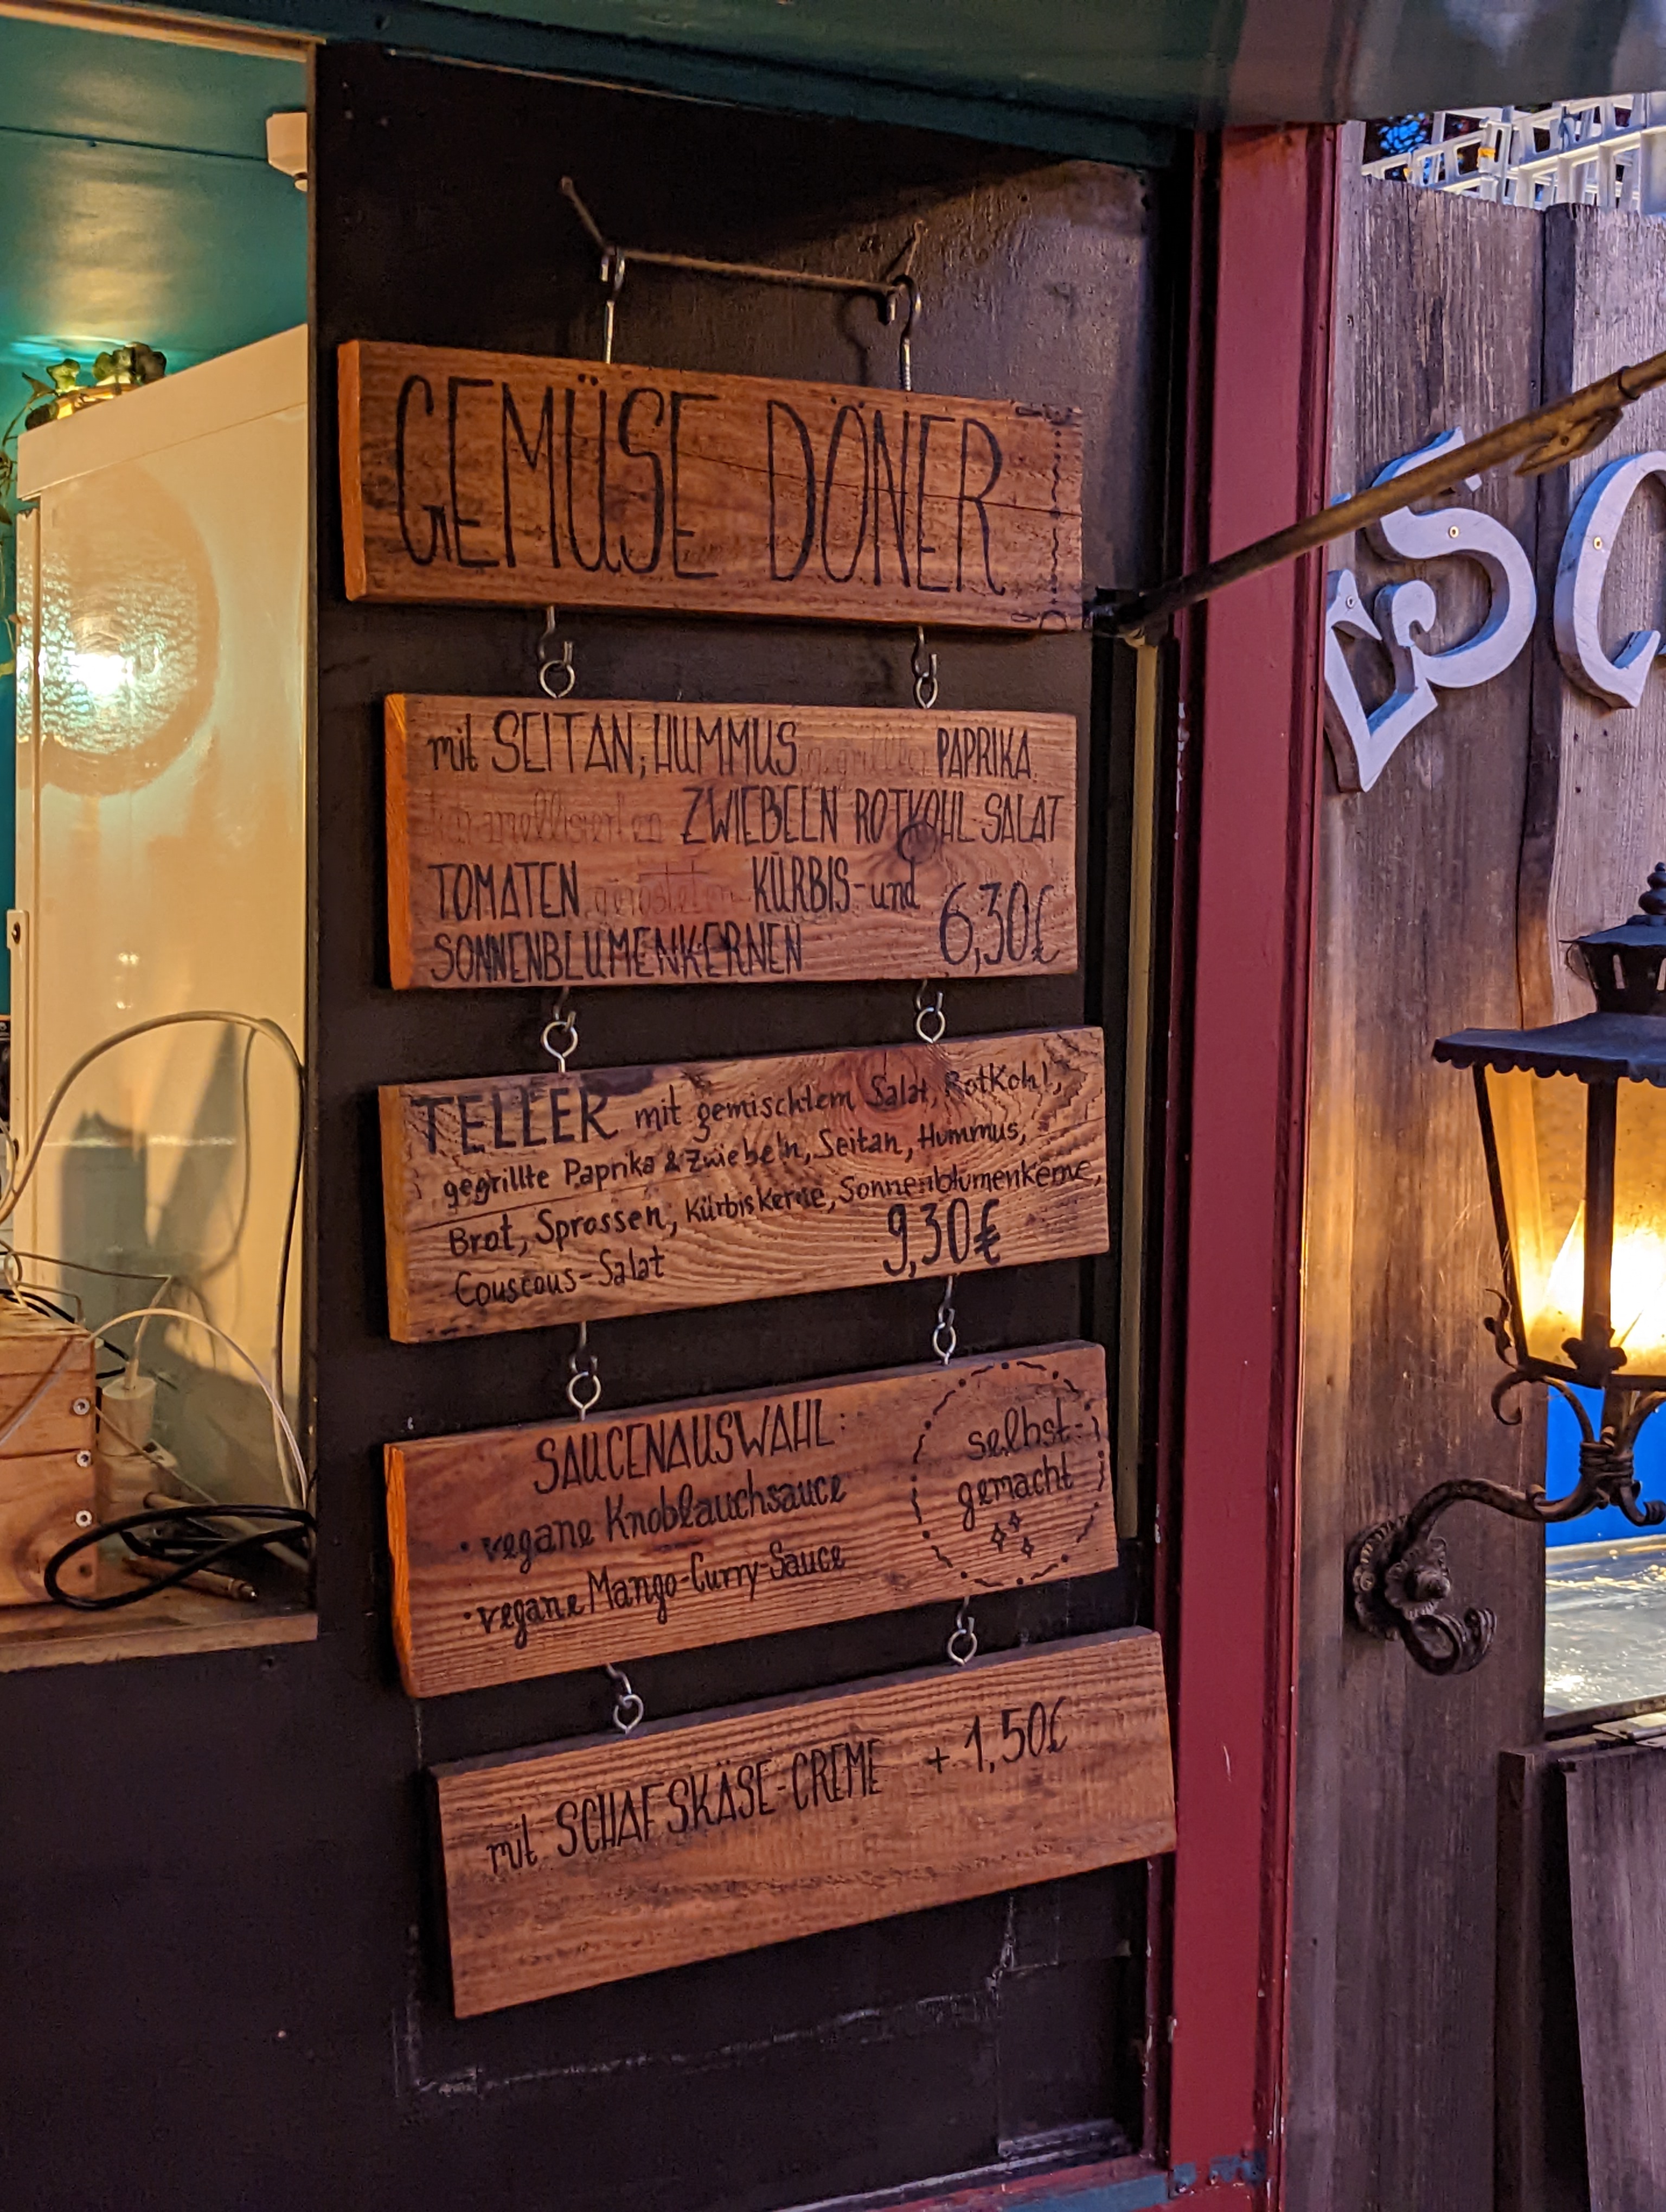 GEMÜSE DÖNER
mit SEITAN, HUMMUS, gegrillter PAPRIKA
karamellisierten ZWIEBELN ROTKOHL SALAT
TOMATEN gerösteten KÜRBIS- und
SONNENBLUMENKERNEN 6,30€
TELLER mit gemischtem Salat, Rotkohl,
gegrillte Paprika & Zwiebeln, Seitan, Hummus,
Brot, Sprossen, Kürbiskerne, Sonnenblumenkerne,
Couscous-Salat 9,30€
SAUCENAUSWAHL:
• vegane Knoblauchsauce
• vegane Mango-Curry-Sauce
selbst-
gemacht
mit SCHAFSKÄSE-CREME + 1,50€